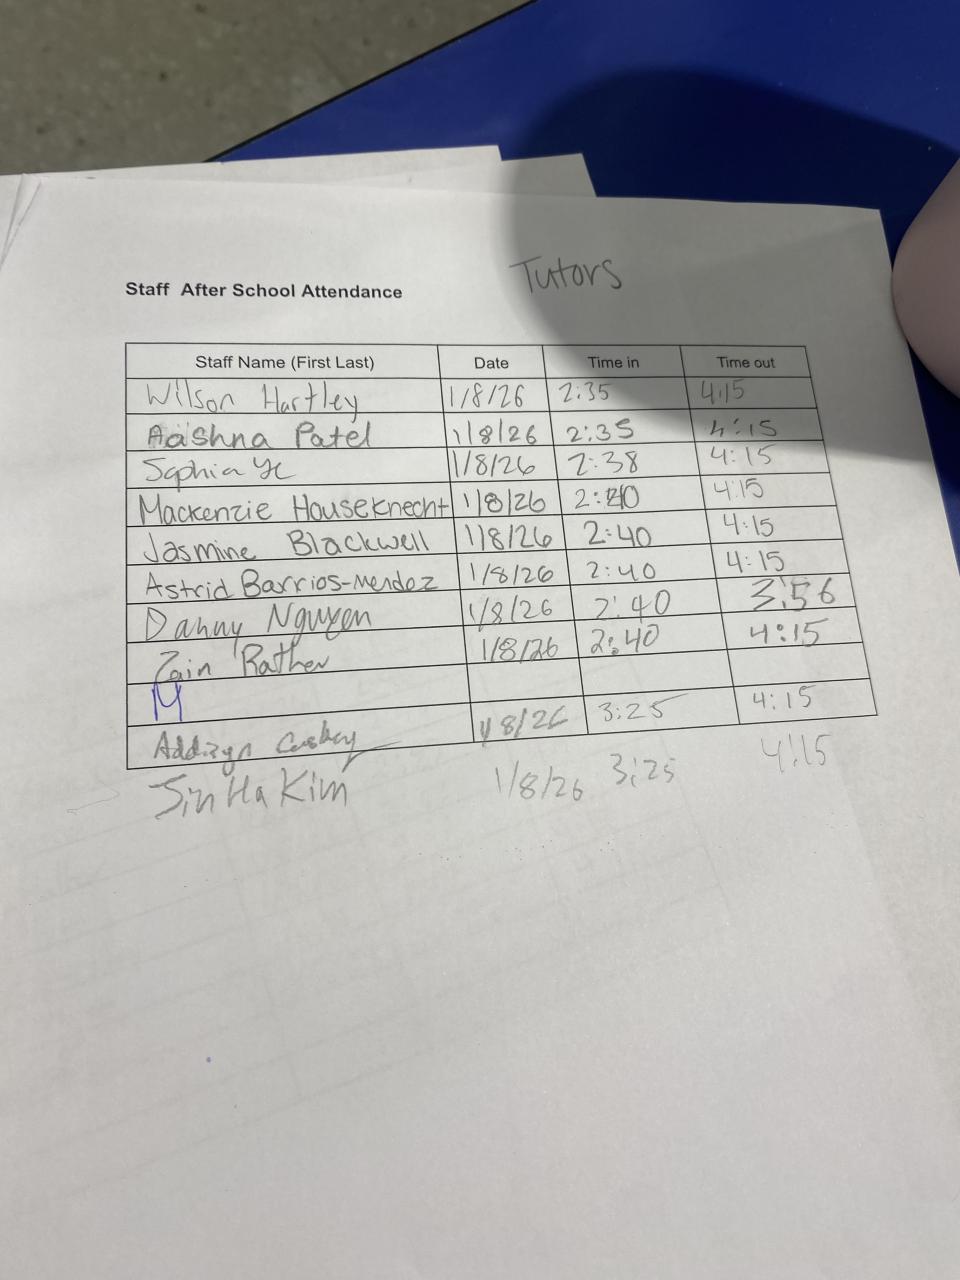 Tutors
Staff After School Attendance
Staff Name (First Last) Date Time in Time out
Wilson Hartley 1/8/26 2:35 4:15
Aashna Patel 1/8/26 2:35 4:15
Sophia Ye 1/8/26 2:38 4:15
Mackenzie Houseknecht 1/8/26 2:40 4:15
Jasmine Blackwell 1/8/26 2:40 4:15
Astrid Barrios-Mendez 1/8/26 2:40 4:15
Danny Nguyen 1/8/26 2:40 3:56
Zain Rather 1/8/26 2:40 4:15
M
Addisyn 1/8/26 3:25 4:15
Jin Ha Kim 1/8/26 3:25 4:15